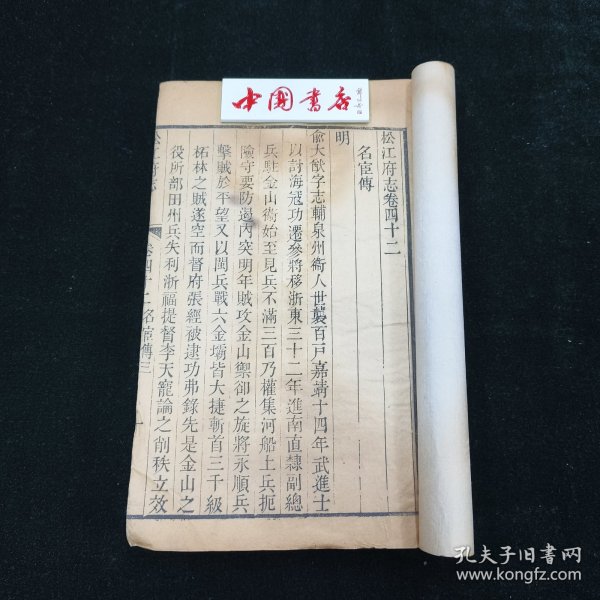 中國書店
松江府志卷四十二
名宦傳
明
俞大猷字志輔泉州衛人世襲百戶嘉靖十四年武進士
以討海寇功遷參將移浙東三十二年進南直隸副總
兵駐金山衛始至見兵不滿三百乃權集河船土兵扼
險守要防遏內突明年賊攻金山禦卻之旋將永順兵
擊賊於平望又以閩兵戰六金壩皆大捷斬首三千級
柘林之賊遂空而督府張經被逮功弗錄先是金山之
役所部田州兵失利浙福提督李天寵論之削秩立效
松江府志
卷四十二名宦傳三
一
孔夫子旧书网
www.kongfz.com